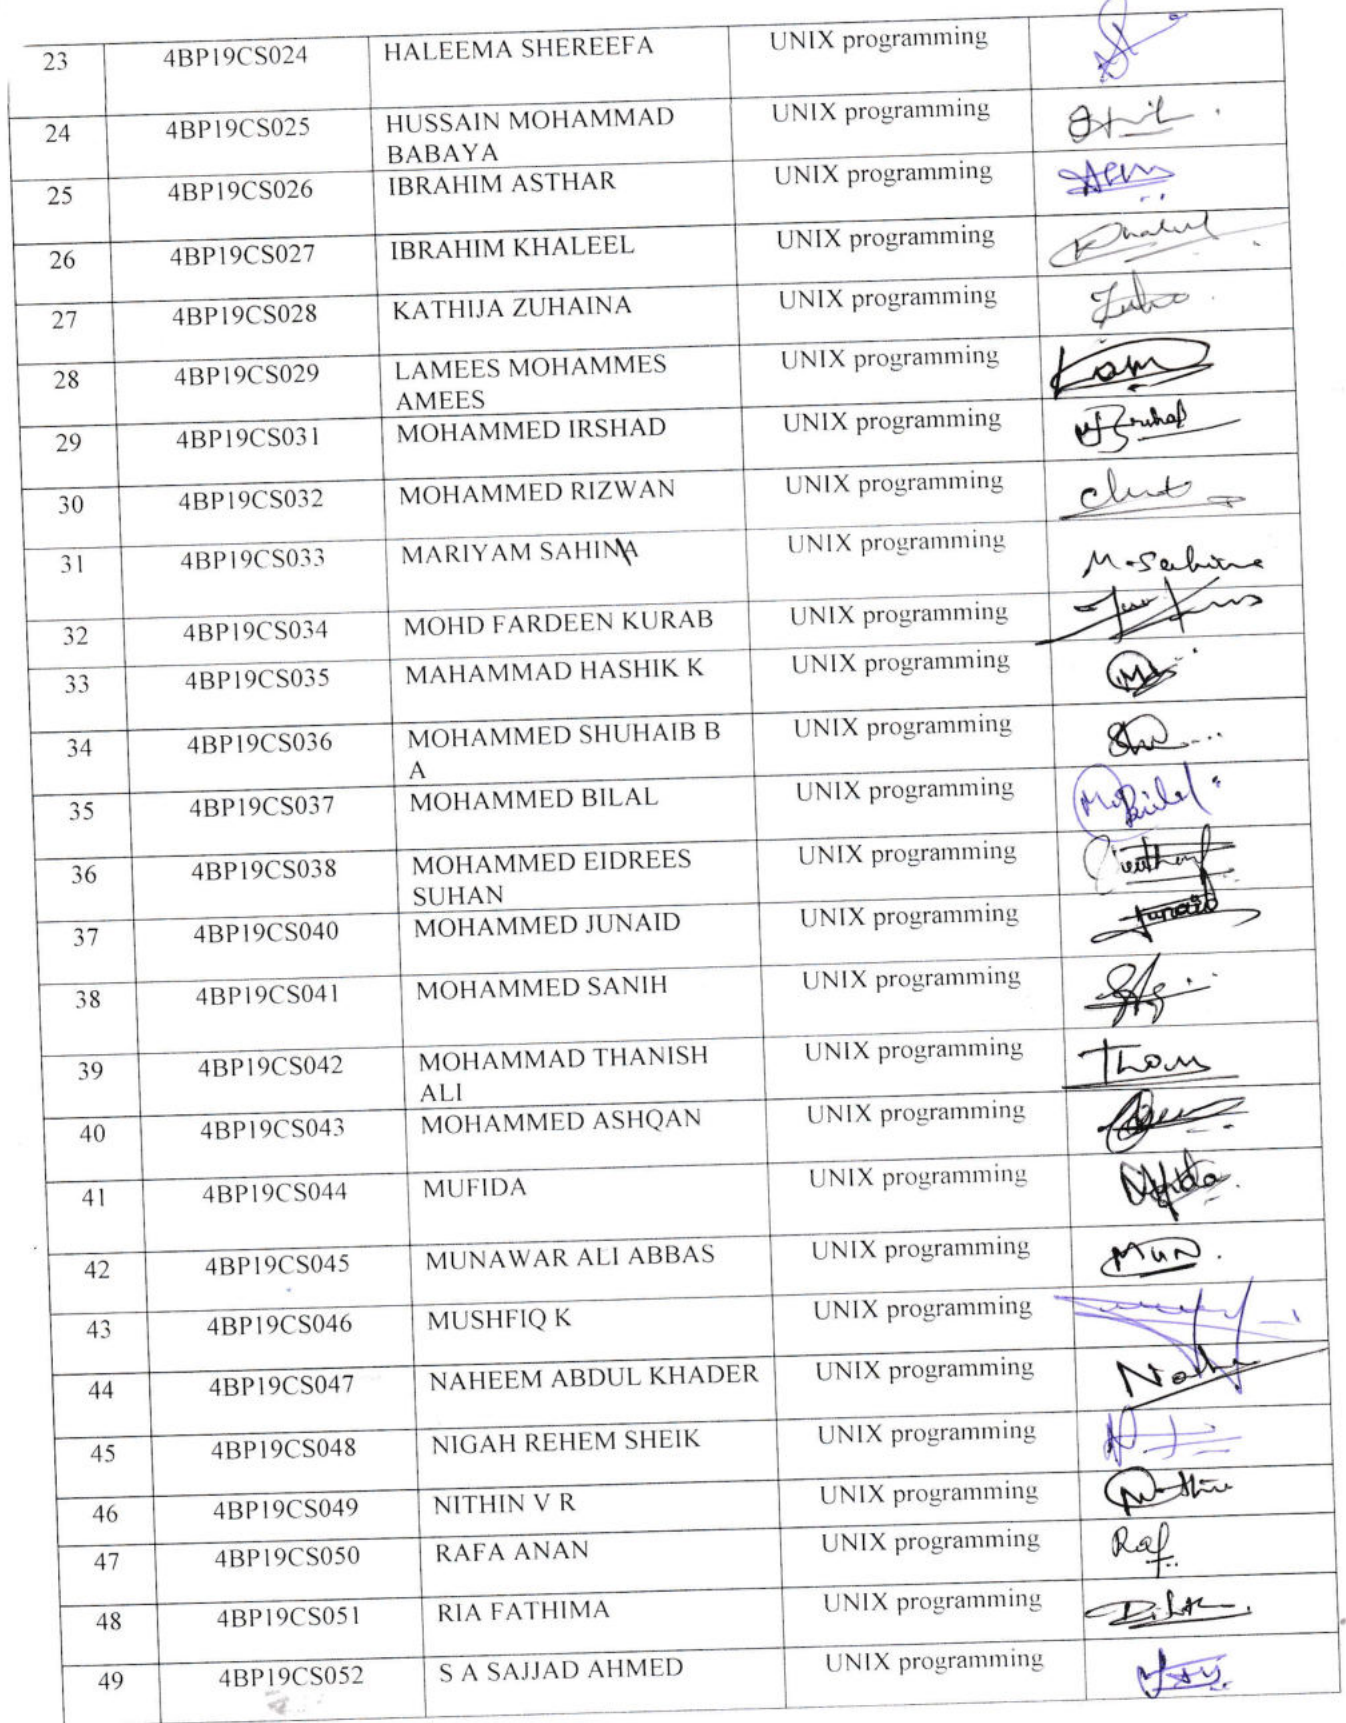 23 4BP19CS024 HALEEMA SHEREEFA UNIX programming
24 4BP19CS025 HUSSAIN MOHAMMAD UNIX programming
BABAYA
25 4BP19CS026 IBRAHIM ASTHAR UNIX programming
26 4BP19CS027 IBRAHIM KHALEEL UNIX programming
27 4BP19CS028 KATHIJA ZUHAINA UNIX programming
28 4BP19CS029 LAMEES MOHAMMES UNIX programming
AMEES
29 4BP19CS031 MOHAMMED IRSHAD UNIX programming
30 4BP19CS032 MOHAMMED RIZWAN UNIX programming
31 4BP19CS033 MARIYAM SAHINA UNIX programming M-Sahina
32 4BP19CS034 MOHD FARDEEN KURAB UNIX programming
33 4BP19CS035 MAHAMMAD HASHIK K UNIX programming
34 4BP19CS036 MOHAMMED SHUHAIB B UNIX programming
A
35 4BP19CS037 MOHAMMED BILAL UNIX programming
36 4BP19CS038 MOHAMMED EIDREES UNIX programming
SUHAN
37 4BP19CS040 MOHAMMED JUNAID UNIX programming Junaid
38 4BP19CS041 MOHAMMED SANIH UNIX programming
39 4BP19CS042 MOHAMMAD THANISH UNIX programming
ALI
40 4BP19CS043 MOHAMMED ASHQAN UNIX programming
41 4BP19CS044 MUFIDA UNIX programming
42 4BP19CS045 MUNAWAR ALI ABBAS UNIX programming Mun
43 4BP19CS046 MUSHFIQ K UNIX programming
44 4BP19CS047 NAHEEM ABDUL KHADER UNIX programming
45 4BP19CS048 NIGAH REHEM SHEIK UNIX programming
46 4BP19CS049 NITHIN V R UNIX programming
47 4BP19CS050 RAFA ANAN UNIX programming Raf
48 4BP19CS051 RIA FATHIMA UNIX programming
49 4BP19CS052 S A SAJJAD AHMED UNIX programming